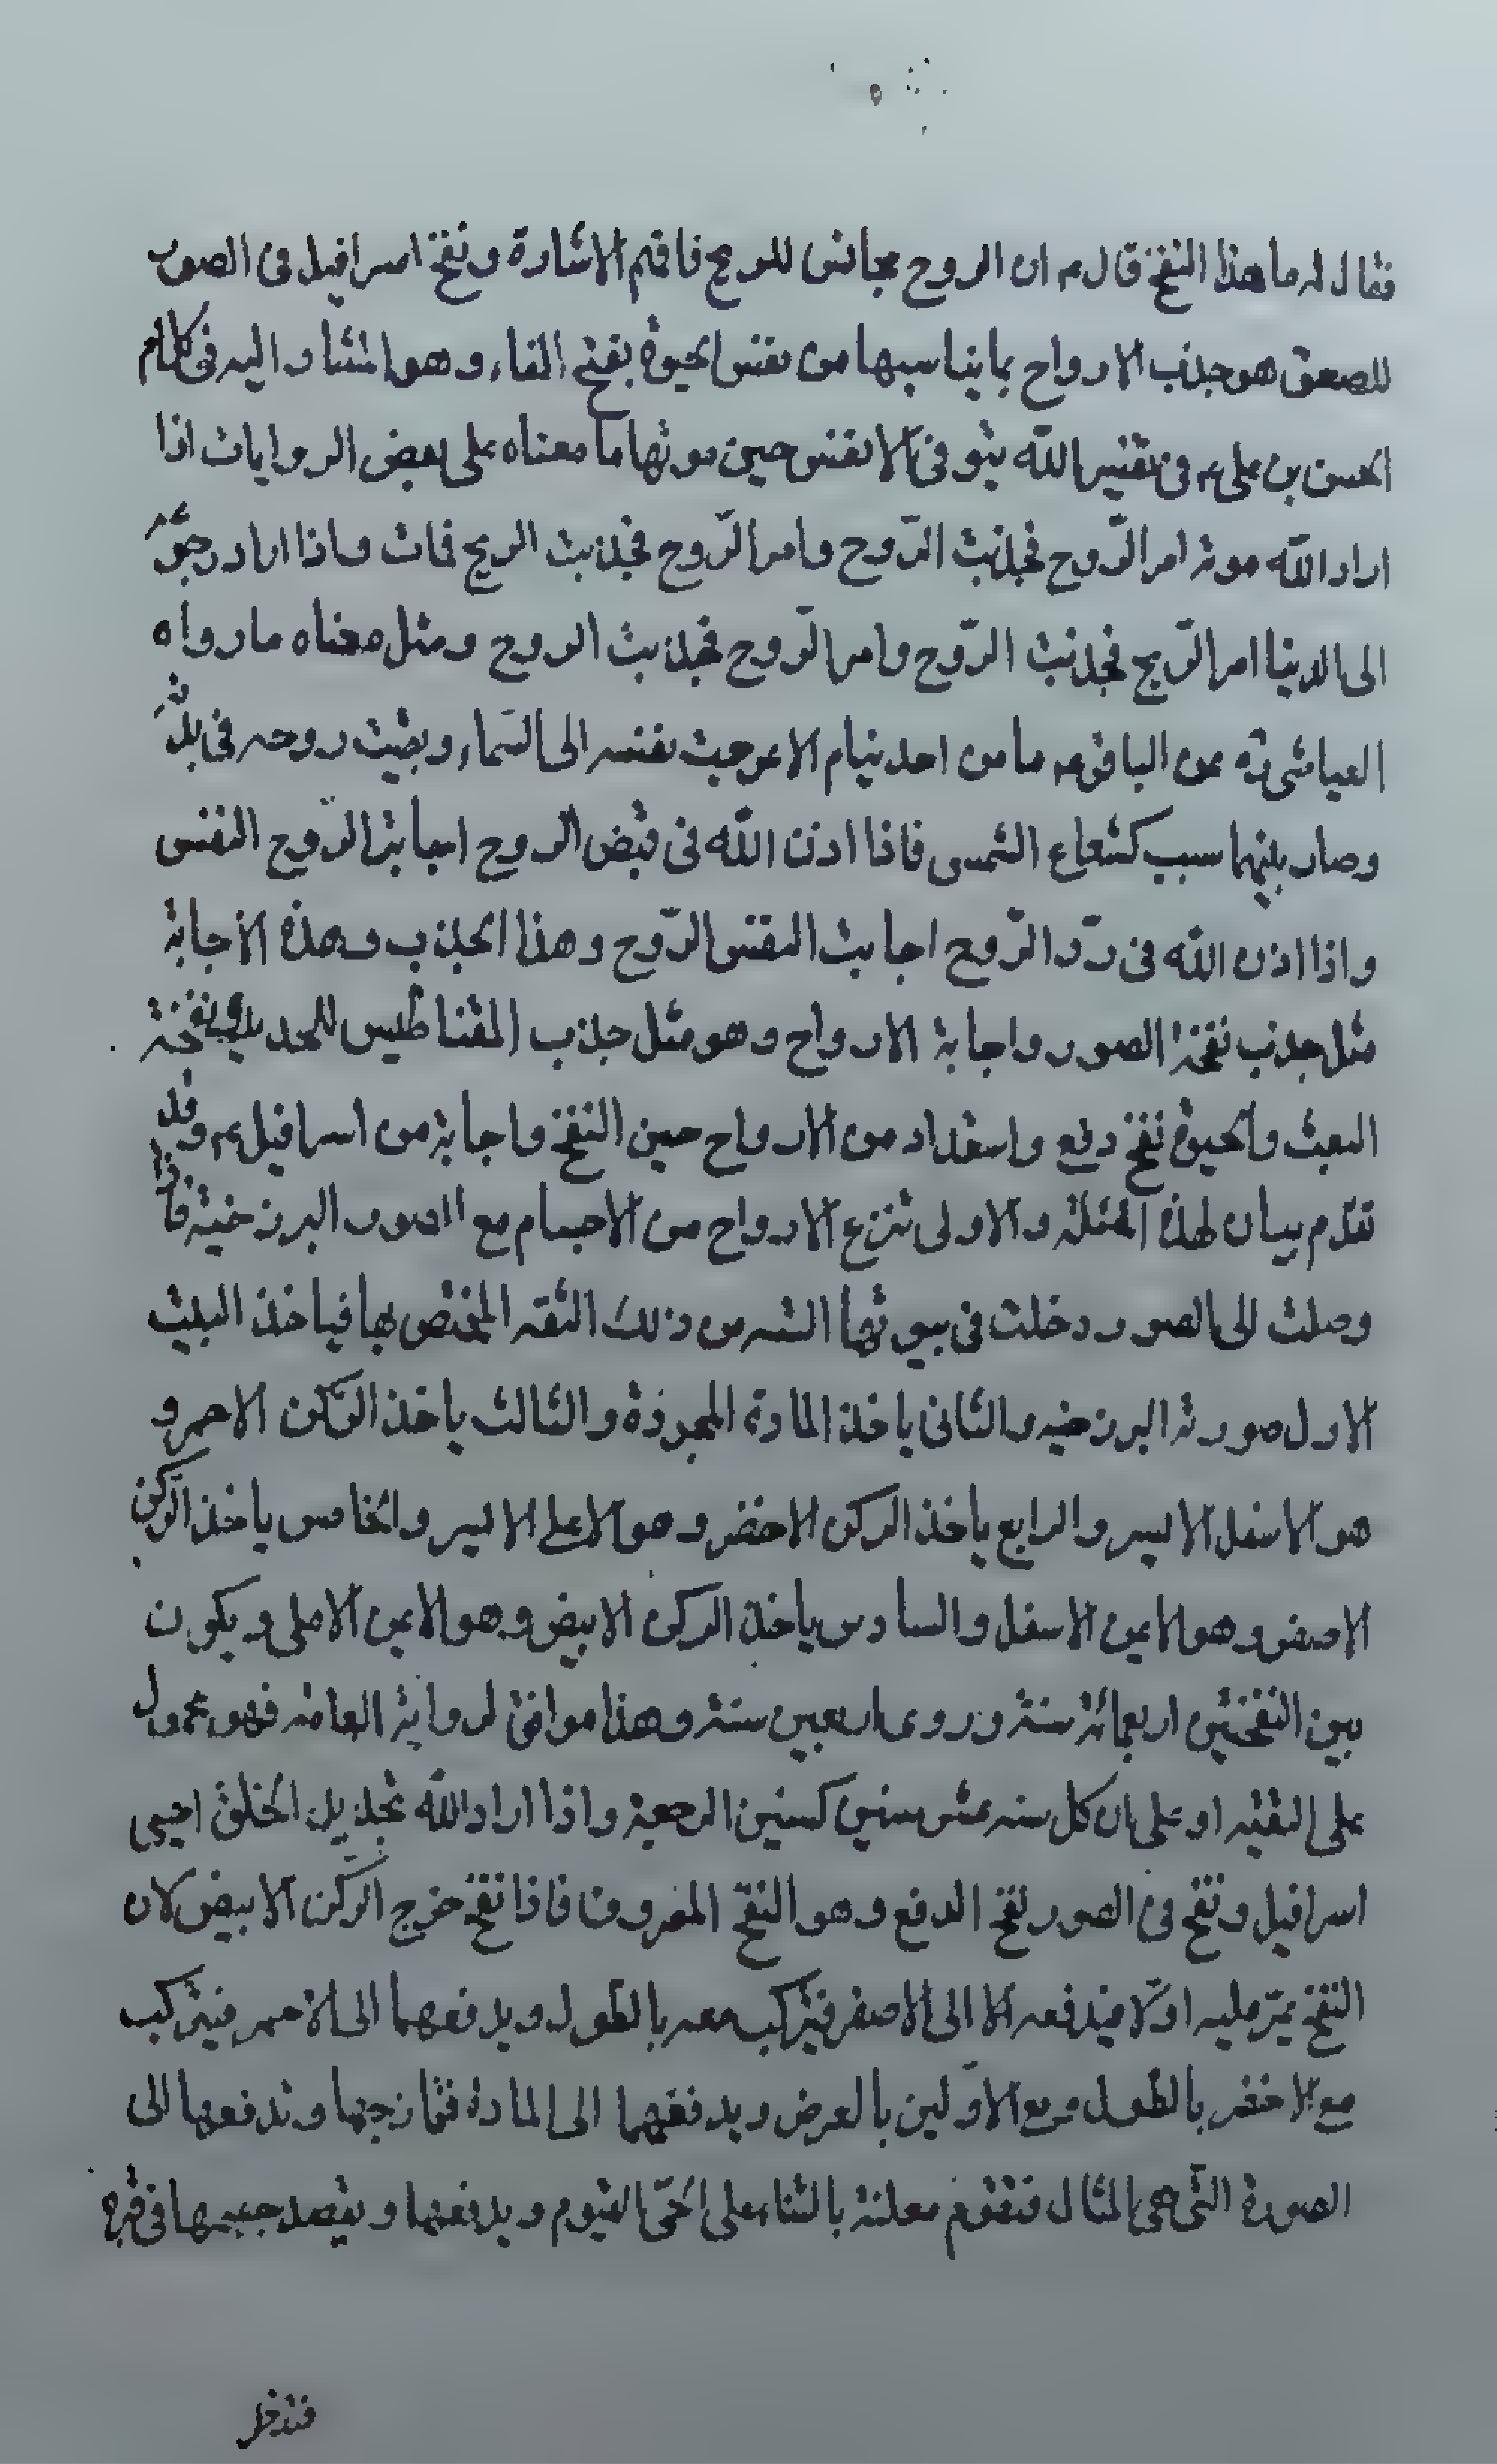 فقال له ما هذا النفخ قال م ان الروح مجانس للريح فافهم الاشارة ونفخ اسرافيل فى الصور
للصعق هو جذب الارواح بما يناسبها من نفس الحيوة بفتح الفاء وهو المشار اليه فى كلام
الحسن بن على م فى تفسير الله يتوفى الانفس حين موتها ما معناه على بعض الروايات اذا
اراد الله موته امر الرّوح فجذبت الرّوح وامر الرّوح فجذبت الريح فمات واذا اراد رجوعه
الى الدنيا امر الرّيح فجذبت الرّوح وامر الرّوح فجذبت الروح ومثل معناه ما رواه
العياشى ره عن الباقر م ما من احد ينام الا عرجت نفسه الى السّماء وبقيت روحه فى بدنه
وصار بينهما سبب كشعاع الشمس فاذا اذن الله فى قبض الروح اجابت الرّوح النفس
واذا اذن الله فى ردّ الرّوح اجابت النفس الرّوح وهذا الجذب وهذه الاجابة
مثل جذب نفخة الصور واجابة الارواح وهو مثل جذب المقناطيس للحديد ونفخة
البعث والحيوة نفخ دفع واستمداد من الارواح حين النفخ واجابة من اسرافيل م وقد
تقدّم بيان لهذه المسئلة والاولى تنزع الارواح من الاجسام مع الصور البرزخية فاذا
وصلت الى الصور دخلت فى بيوتها الستّه من ذلك الثقب المختص بها فياخذ البيت
الاول صورته البرزخيه والثانى ياخذ المادة المجردة والثالث ياخذ الرّكن الاحمر و
هو الاسفل الايسر والرابع ياخذ الركن الاخضر وهو الاعلى الايسر والخامس ياخذ الرّكن
الاصفر وهو الايمن الاسفل والسادس ياخذ الركن الابيض وهو الايمن الاعلى ويكون
بين النفختين اربعمائة سنة وروى اربعين سنة وهذا موافق لرواية العامّه فهو محمول
على التقيه او على ان كل سنه عشر سنين كسنين الرجعة واذا اراد الله تجديد الخلق احيى
اسرافيل ونفخ فى الصور نفخ الدفع وهو النفخ المعروف فاذا نفخ خرج الرّكن الابيض لان
النفخ يمرّ عليه اوّلا فيدفعه الا الى الاصفر فيتركب معه بالطّول ويدفعهما الى الاحمر فيتركب
مع الاخضر بالطّول ومع الاوّلين بالعرض ويدفعهما الى المادة فتمازجها وتدفعها الى
الصورة التى هى المثال فتقوم معلنة بالثناء على الحىّ القيوم ويدفعها ويقصد جسمها فى قبره
فتدخل